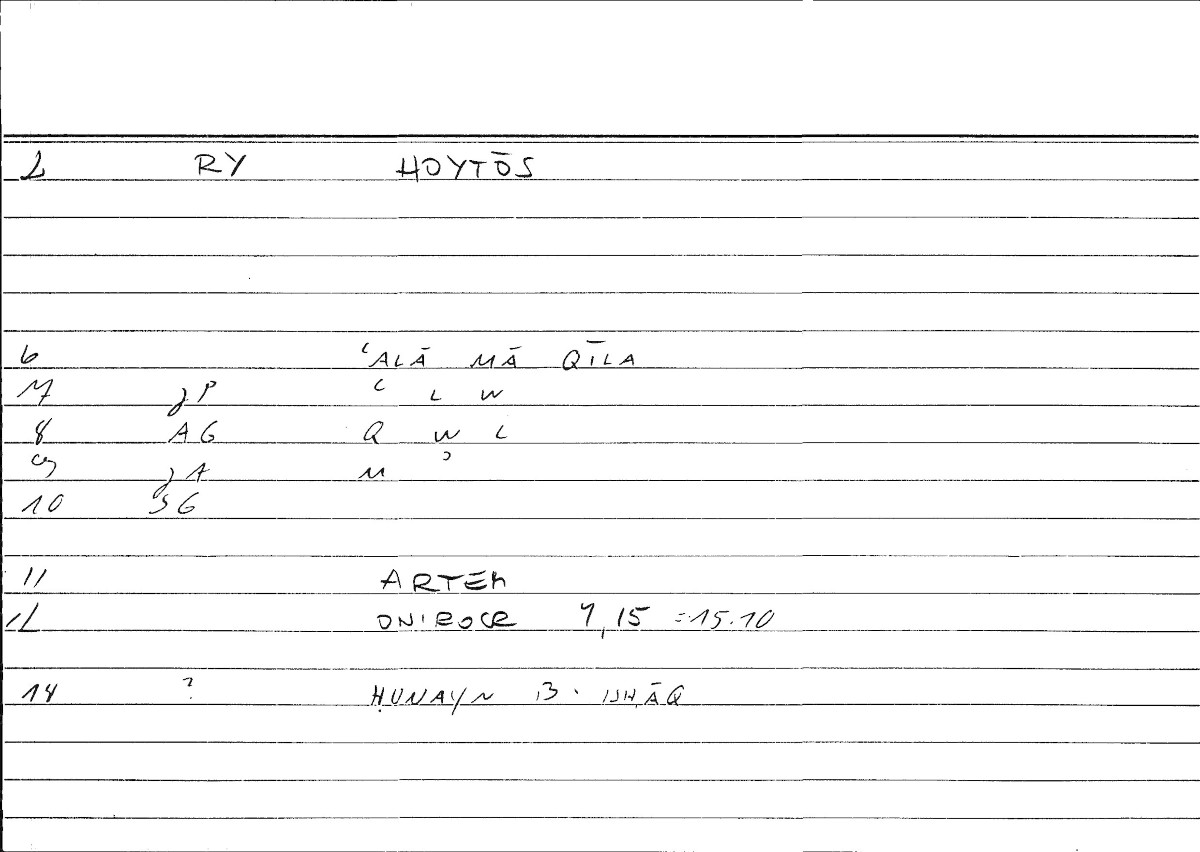 2 RY HOYTŌS
6 ʿALĀ MĀ QĪLA
7 JP ʿ L W
8 AG Q W L
9 JA M ʾ
10 SG
11 ARTEM
12 ONIROCR 7,15 = 15.10
14 ? ḤUNAYN B. ISḤĀQ